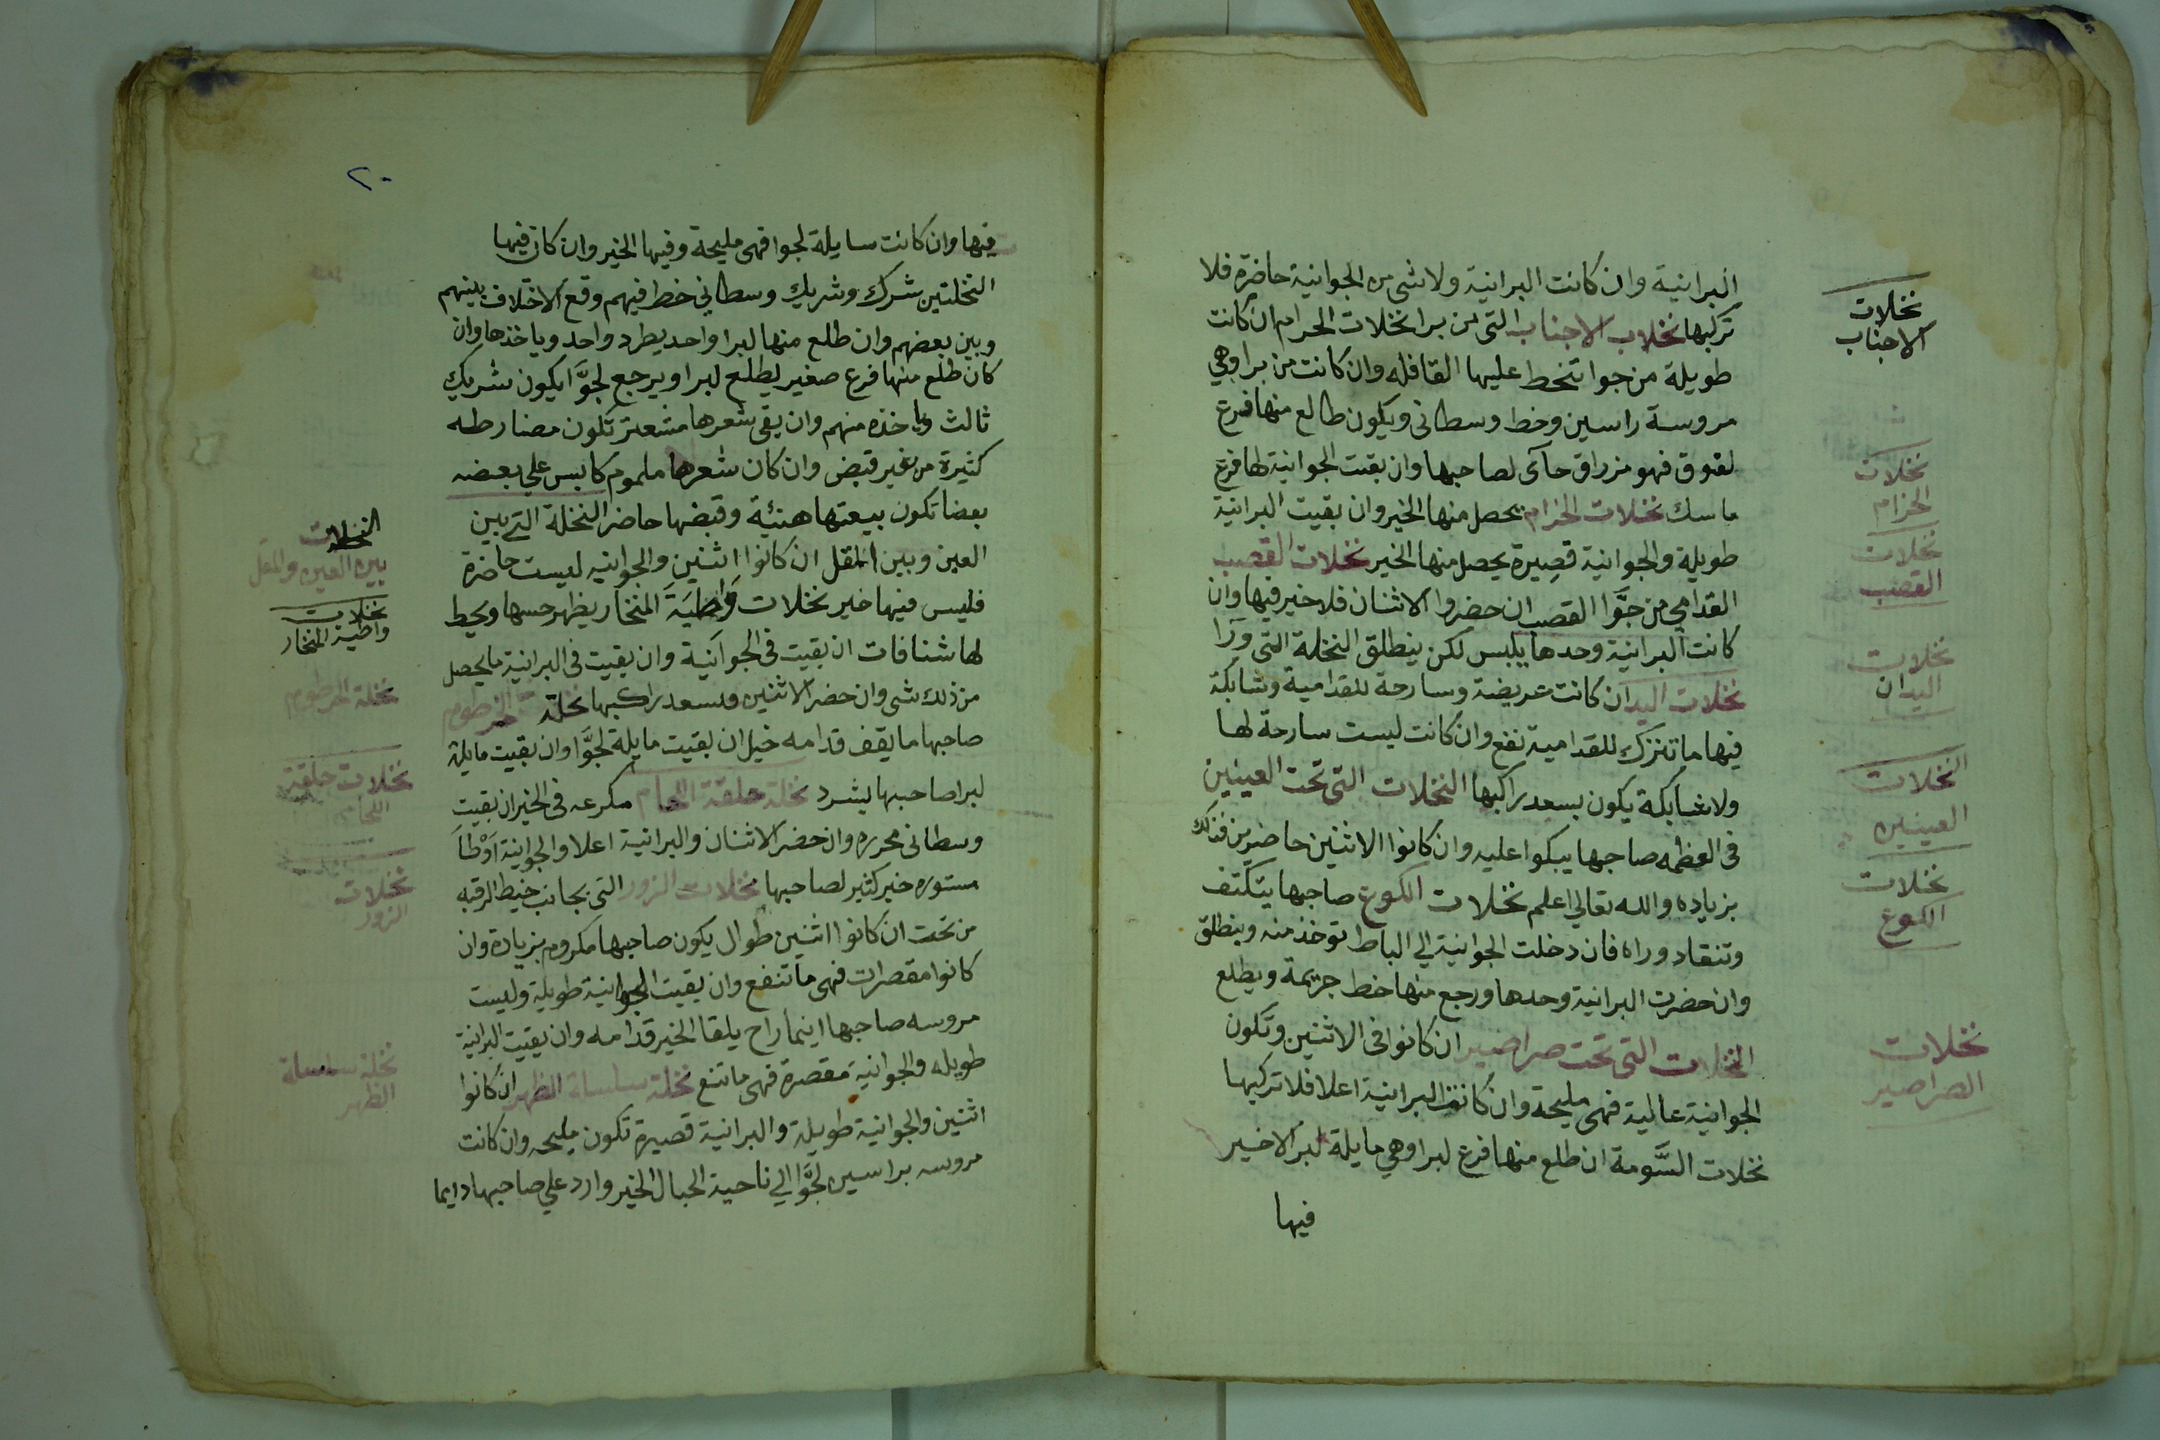 البرانية وان كانت البرانية ولا شى من الجوانية حاضرة فلا
تركبها نخلات الاجناب التى من برا نخلات الحرام ان كانت
طويلة من جوا تنحط عليها القافله وان كانت من برا وهي
مروسة راسين وخط وسطانى ويكون طالع منها فرع
لفوق فهو مزراق حاكى لصاحبها وان بقيت الجوانية لها فرع
ماسك نخلات الحزام يحصل منها الخير وان بقيت البرانية
طويلة والجوانية قصيرة يحصل منها الخير نخلات القصب
القدامي من جوَّا القصب ان حضروا الاثنان فلا خير فيها وان
كانت البرانية وحدها يلبس لكن ينطلق النخلة التى ورا
نخلات اليدان كانت عريضة وسارحة للقدامية وشابكة
فيها ما تترك للقدامية نفع وان كانت ليست سارحة لها
ولا شابكة يكون يسعد راكبها النخلات التى تحت العينين
فى العظمه صاحبها يبكوا عليه وان كانوا الاثنين حاضرين فذلك
بزياده والله تعالى اعلم نخلات الكوع صاحبها يتكتف
وتنقاد وراه فان دخلت الجوانية الي الباط توخذ منه وينطلق
وان حضرت البرانية وحدها ورجع منها خط جريمة ويطلع
النخلات التى تحت صراصير ان كانوا فى الاثنين وتكون
الجوانية عالية فهى مليحة وان كانت البرانية اعلا فلا تركبها
نخلات السَّومة ان طلع منها فرع لبرا وهي مايلة لبرا لاخير
فيها
نخلات
الاجناب
نخلات
الحزام
نخلات
القصب
نخلات
اليدان
النخلات
العينين
نخلات
الكوع
نخلات
الصراصير
٢٠
فيها وان كانت سايلة لجوا فهى مليحة وفيها الخير وان كان فيها
النخلتين شرك وشريك وسطاني خط فيهم وقع الاختلاف بينهم
وبين بعضهم وان طلع منها لبرا واحد يطرد واحد وياخذها وان
كان طلع منها فرع صغير يطلع لبرا ويرجع لجوَّا يكون شريك
ثالث وياخذه منهم وان بقى شعرها مشعتر تكون مضارطه
كثيرة من غير قبض وان كان شعرها ملموم كابس علي بعضه
بعضا تكون بيعتها هنئية وقبضها حاضر النخلة التى بين
العين وبين المقل ان كانوا اثنين والجوانيه ليست حاضرة
فليس فيها خير نخلات وَاطيَة المنخار يظهر حسها ويحط
لها شنافات ان بقيت فى الجوانية وان بقيت فى البرانية ما يحصل
من ذلك شى وان حضر الاثنين فسعد راكبها نخلة الخرطوم
صاحبها ما يقف قدامه خيل ان بقيت مايلة لجوَّا وان بقيت مايلة
لبرا صاحبها يشرد نخلة حلقة اللجام مكرعه فى الخير ان بقيت
وسطانى محرره وان حضر الاثنان والبرانية اعلا والجوانية اَوْطَا
مستوره خير كثير لصاحبها نخلات الزور التى بجانب خيط الرقبه
من تحت ان كانوا اثنين طوال يكون صاحبها مكروم بزيادة وان
كانوا مقصرات فهى ما تنفع وان بقيت الجوانية طويلة وليست
مروسه صاحبها اينما راح يلقا الخير قدامه وان بقيت البرانية
طويله والجوانية مقصرة فهى ما تنع نخلة سلسلة الظهر ان كانوا
اثنين والجوانية طويلة والبرانية قصيرة تكون مليحه وان كانت
مروسه براسين لجوَّا الي ناحية الحبال الخير وارد علي صاحبها دايما
النخلات
بين العين والمقل
نخلات
واطية المنخار
نخلة الخرطوم
نخلات حلقة
اللجام
نخلات
الزور
نخلة سلسلة
الظهر